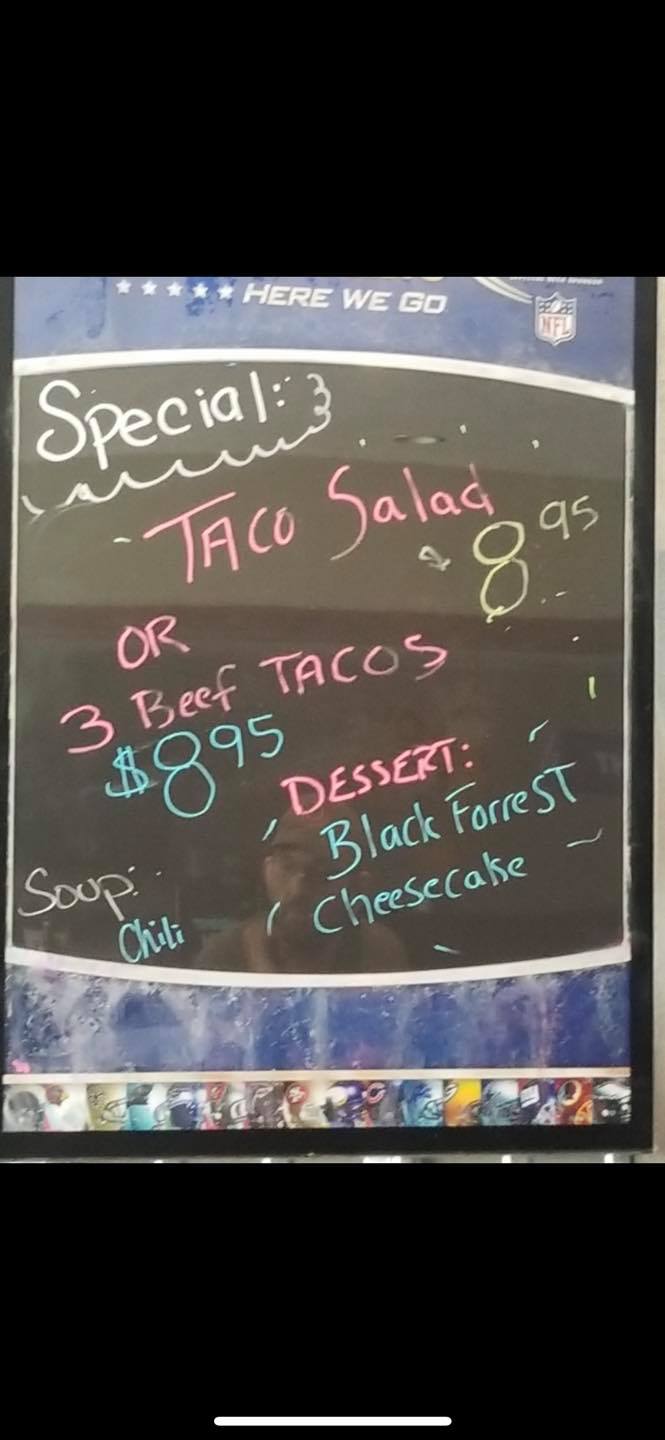 HERE WE GO
NFL
Special:
TACO Salad
$8 95
OR
3 Beef TACOS
$8 95
DESSERT:
Black Forrest
Cheesecake
Soup:
Chili